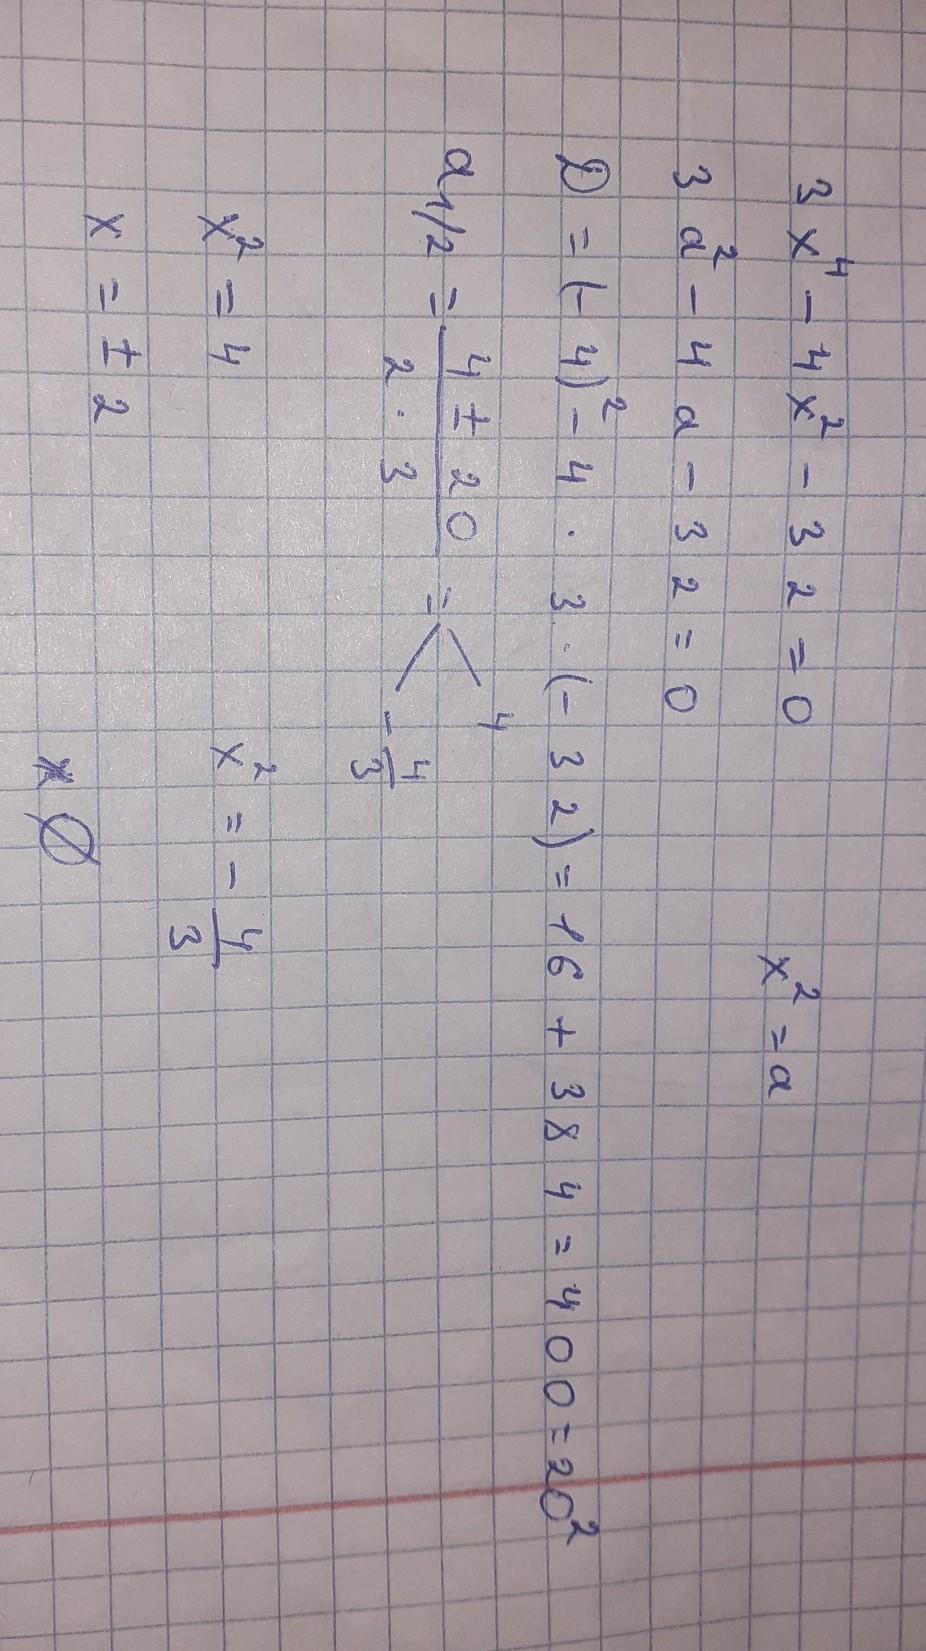 3x⁴ - 4x² - 32 = 0
x² = a
3a² - 4a - 32 = 0
D = (-4)² - 4 · 3 · (-32) = 16 + 384 = 400 = 20²
a1/2 = (4 ± 20)/(2 · 3) = 4
-4/3
x² = 4
x² = -4/3
x = ±2
∅